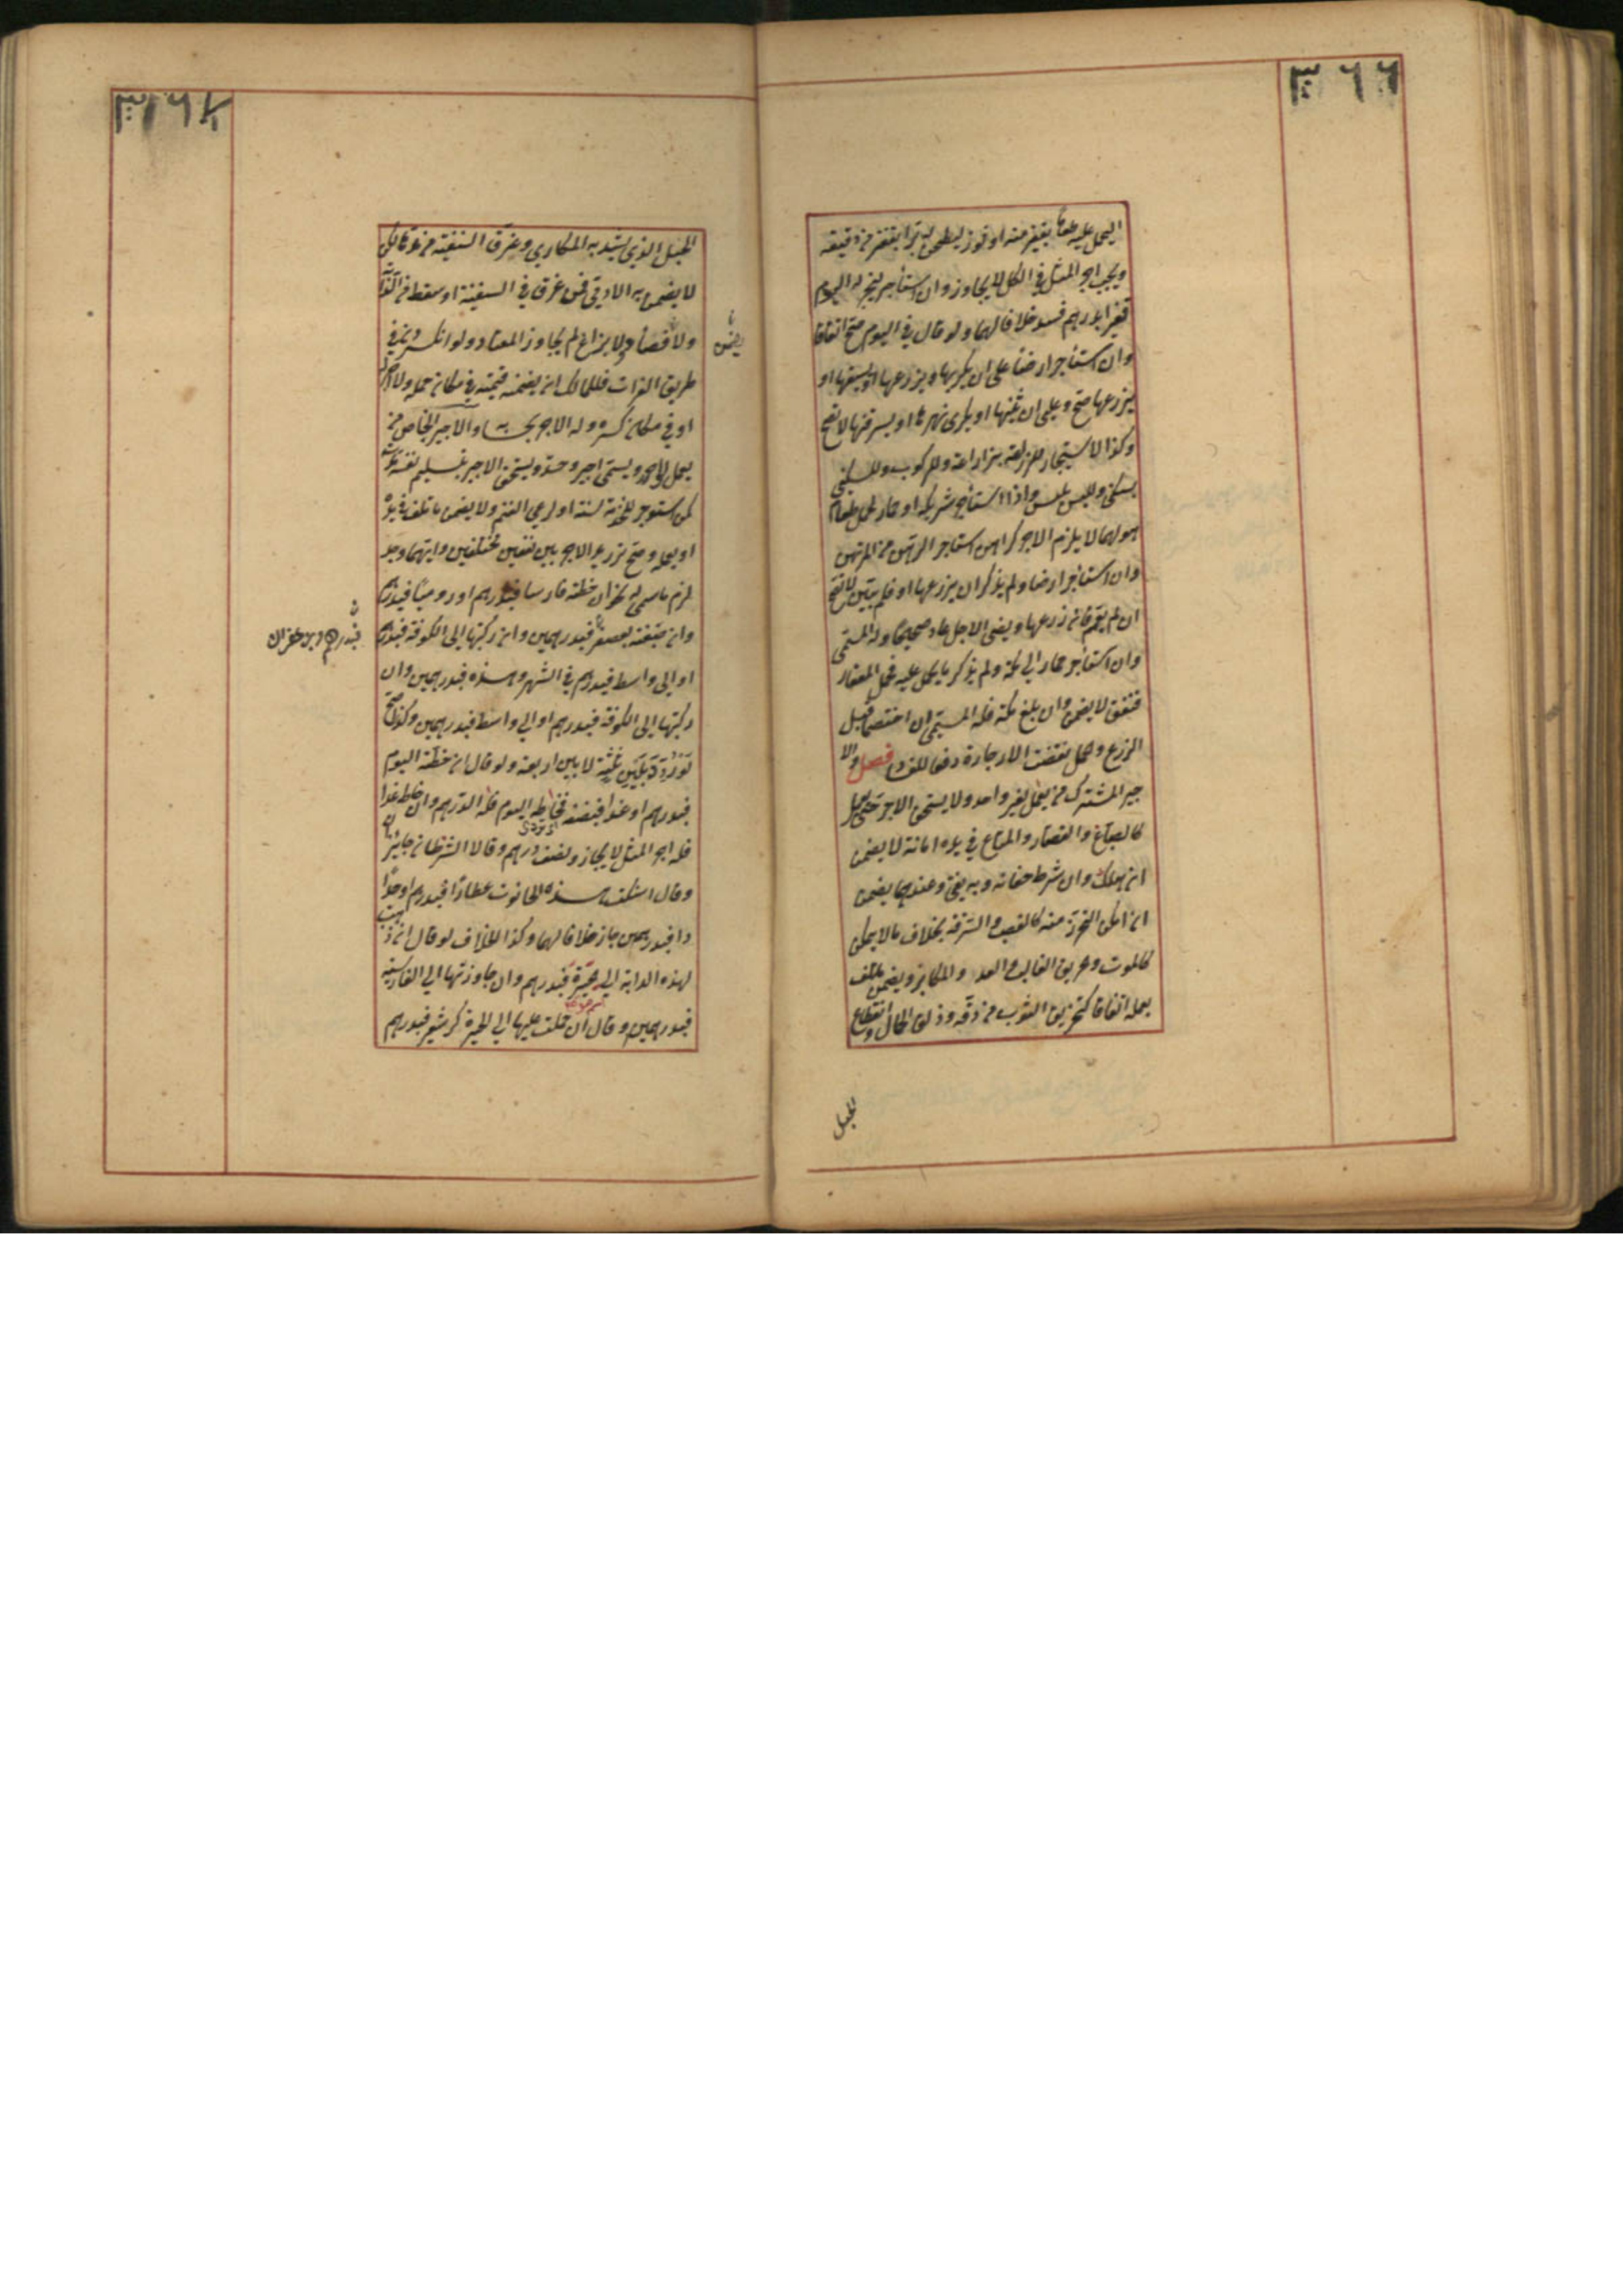 ٣٦٦
ليحمل عليه طعاما بقفيز منه او ثورا ليطحن له برا بقفيز من دقيقه
ويجب اجر المثل في الكل لا يجاوز وان استأجر ليخبز له اليوم
قفيزا بدرهم فسد خلافا لهما ولو قال في اليوم صح اتفاقا
وان استأجر ارضا على ان يكربها ويزرعها او يسقيها او
يزرعها صح وعلى ان يثنيها او يكري نهرها او يسرقنها لا تصح
وكذا الاستيجار للزراعة بزراعة وللركوب وللسكنى
بسكنى وللبس بلبس واذا استأجر شريكه او حماره لحمل طعام
هو لهما لا يلزم الاجر كراهن استاجر الرهن من المرتهن
وان استأجر ارضا ولم يذكر ان يزرعها او لم يبين لا تصح
ان لم يعمم فان زرعها ومضى الاجل عاد صحيحا وله المسمى
وان استأجر حمار الى مكة ولم يذكر ما يحمل عليه فحمل المعتاد
فنفق لا يضمن وان بلغ مكة فله المسمى وان اختصما قبل
الزرع وحمل نقضت الاجارة دفعا للفساد فصل والا
جير المشترك من يعمل لغير واحد ولا يستحق الاجر حتى يعمل
كالصباغ والقصار والمتاع في يده امانة لا يضمن
ان هلك وان شرط ضمانه وبه يفتى وعندهما يضمن
ان امكن التحرز منه كالغصب والسرقة بخلاف ما لا يمكن
كالموت وحريق الغالب والعدو والمكابر ويضمن ما تلف
بعمله اتفاقا كتخريق الثوب من دقه وزلق الحمال وانقطاع
الحبل
٣٦٧
الحبل الذي يشد به المكاري وغرق السفينة من مدها لكن
لا يضمن به الادمي ممن غرق في السفينة او سقط من الدابة
ولا فصاد ولا بزاغ لم يجاوز المعتاد ولو انكسر دن في
يضمن
طريق الفرات فللمالك ان يضمنه قيمته في مكان حمله ولا اجر له
او في مكان كسره وله الاجر بحسابه والاجير الخاص من
يعمل لواحد ويسمى اجير وحد ويستحق الاجر بتسليم نفسه مدته
كمن استوجر للخدمة سنة او لرعي الغنم ولا يضمن ما تلف في يده
او بعمله وصح ترديد الاجر بين نفعين مختلفين وايهما وجد
لزم ما سمى له نحو ان خطته فارسيا فبدرهم او روميا فبدرهمين
وان صبغته بعصفر فبدرهمين وان ركبتها الى الكوفة فبدرهم
فبدرهم وبزعفران
او الى واسط فبدرهم في الشهر وهذه فبدرهمين وان
ركبتها الى الكوفة فبدرهم او الى واسط فبدرهمين وكذا صح
لو ردد بين ثلثة لا بين اربعة ولو قال ان خطته اليوم
فبدرهم او غدا فبنصفه فخاطه اليوم فله الدرهم وان خاط غدا
فله اجر المثل لا يجاوز نصف درهم وقالا الشرطان جائزان
وقال اسكنت هذه الحانوت عطارا فبدرهم او حدا
دا فبدرهمين جاز خلافا لهما وكذا الخلاف لو قال ان ذهبت
بهذه الدابة الى حيرة فبدرهم وان جاوزتها الى القادسية
اسم موضع
فبدرهمين وقال ان حملت عليها الى الحيرة كر شعير فبدرهم